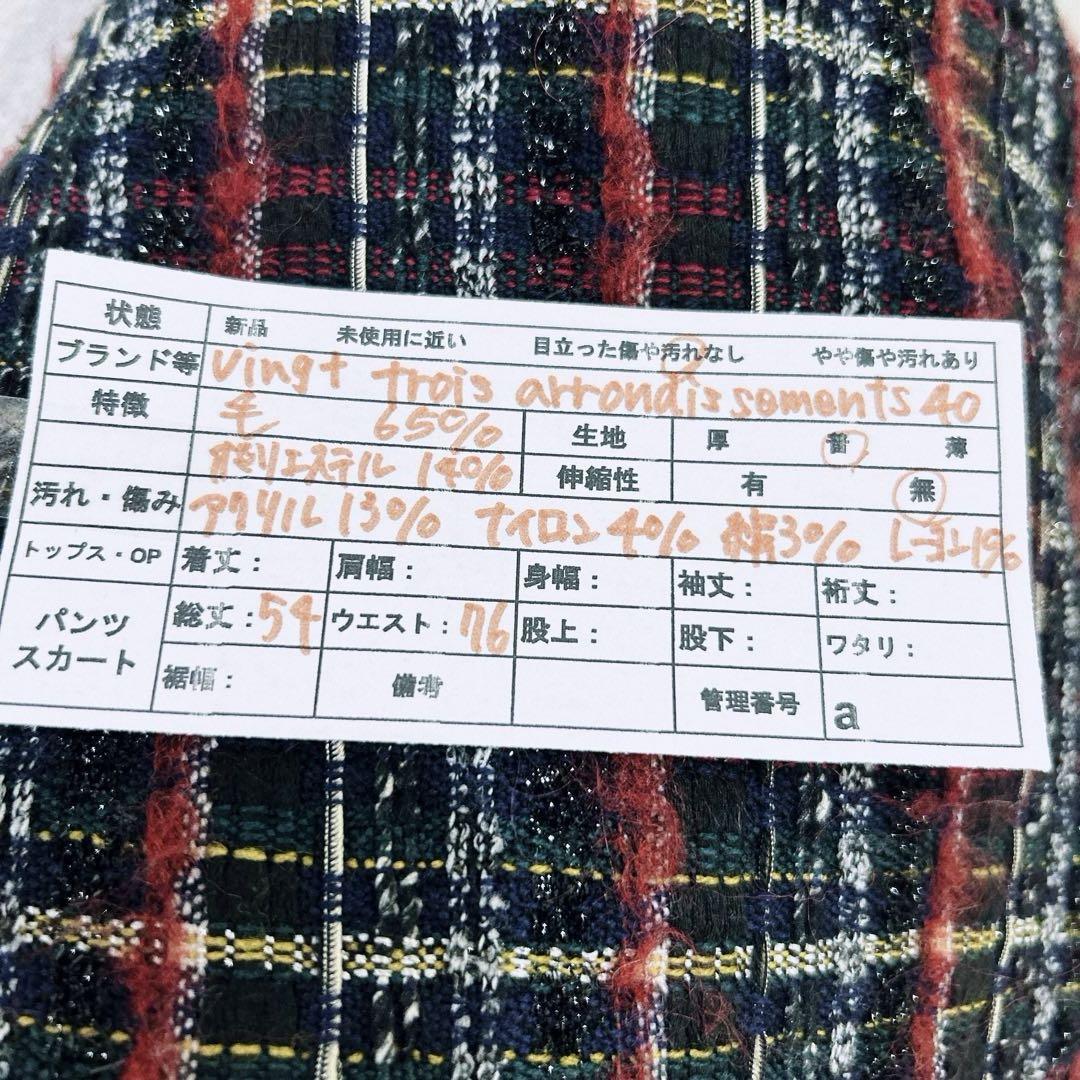 状態 新品 未使用に近い 目立った傷や汚れなし やや傷や汚れあり
ブランド等 vingt trois arrondissements 40
特徴 毛 65% 生地 厚 普 薄
ポリエステル 14% 伸縮性 有 無
汚れ・傷み アクリル 13% ナイロン 4% 綿3% レーヨン1%
トップス・OP 着丈: 肩幅: 身幅: 袖丈: 裄丈:
パンツ スカート 総丈:54 ウエスト:76 股上: 股下: ワタリ:
裾幅: 備考 管理番号 a